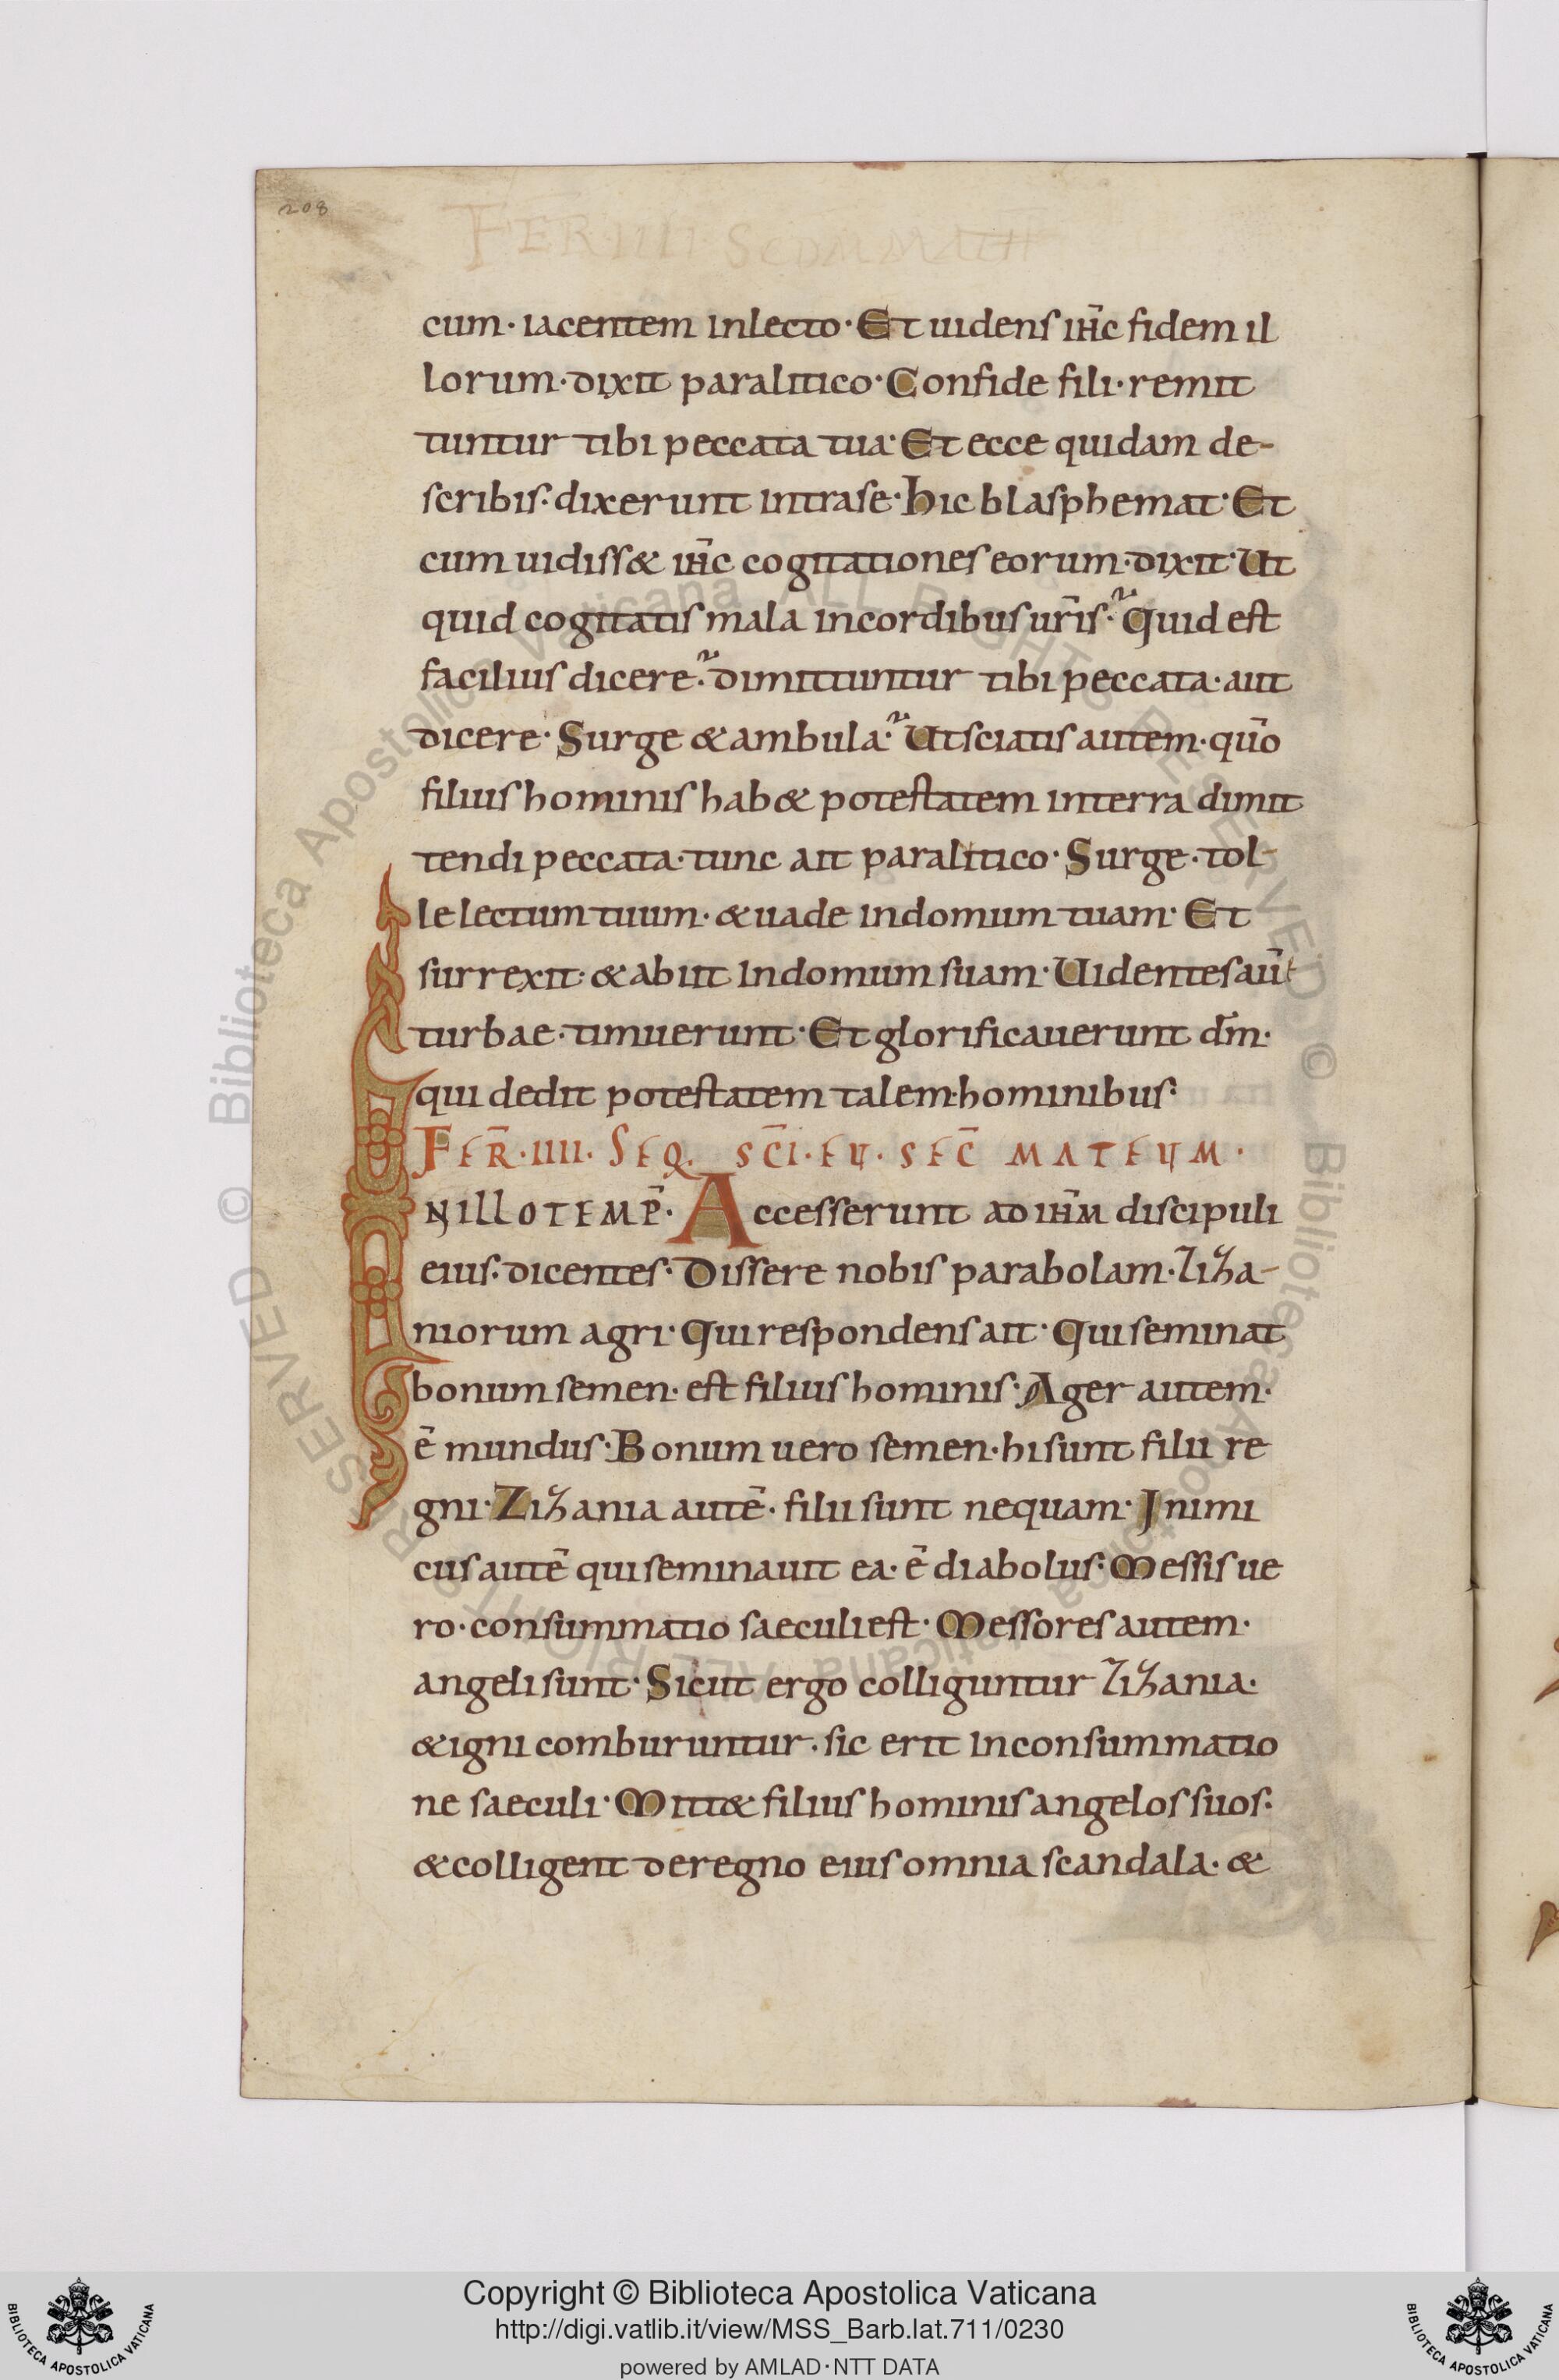 208
FER·IIII· SCDM MATH
cum· iacentem inlecto· Et uidens ih̄c fidem il
lorum· dixit paralitico· Confide fili· remit
tuntur tibi peccata tua· Et ecce quidam de-
scribis· dixerunt intrase· hic blasphemat· Et
cum uidiss& ih̄c cogitationes eorum· dixit· Ut
quid cogitatis mala incordibus ur̄is? Quid est
facilius dicere? dimittuntur tibi peccata· aut
dicere· Surge & ambula? Utsciatis autem· quō
filius hominis hab& potestatem interra dimit
tendi peccata· tunc ait paralitico· Surge· tol-
le lectum tuum· & uade indomum tuam· Et
surrexit· & abiit indomum suam· Uidentes aūt
turbae· timuerunt· Et glorificauerunt dm̄·
qui dedit potestatem talem· hominibus·
FER̄·IIII· SEQ. SC̄I·EU· SEC̄ MATEUM·
INILLOTEMP̄· Accesserunt ad ih̄m discipuli
eius· dicentes· Dissere nobis parabolam· ziza-
niorum agri· Qui respondens ait· Qui seminat
bonum semen· est filius hominis· Ager autem·
ē mundus· Bonum uero semen· hi sunt filii re
gni· Zizania autē· filii sunt nequam· Inimi
cus autē qui seminauit ea· ē diabolus· Messis ue
ro· consummatio saeculi est· Messores autem·
angeli sunt· Sicut ergo colliguntur zizania·
& igni comburuntur· sic erit inconsummatio
ne saeculi· Mitt& filius hominis angelos suos·
& colligent deregno eius omnia scandala· &
© Biblioteca Apostolica Vaticana ALL RIGHTS RESERVED © Biblioteca Apostolica Vaticana ALL RIGHTS RESERVED
BIBLIOTECA APOSTOLICA VATICANA
Copyright © Biblioteca Apostolica Vaticana
http://digi.vatlib.it/view/MSS_Barb.lat.711/0230
powered by AMLAD·NTT DATA
BIBLIOTECA APOSTOLICA VATICANA